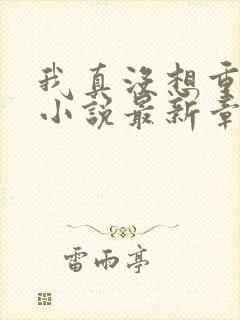 我真没想重
小说最新章
雷雨亭